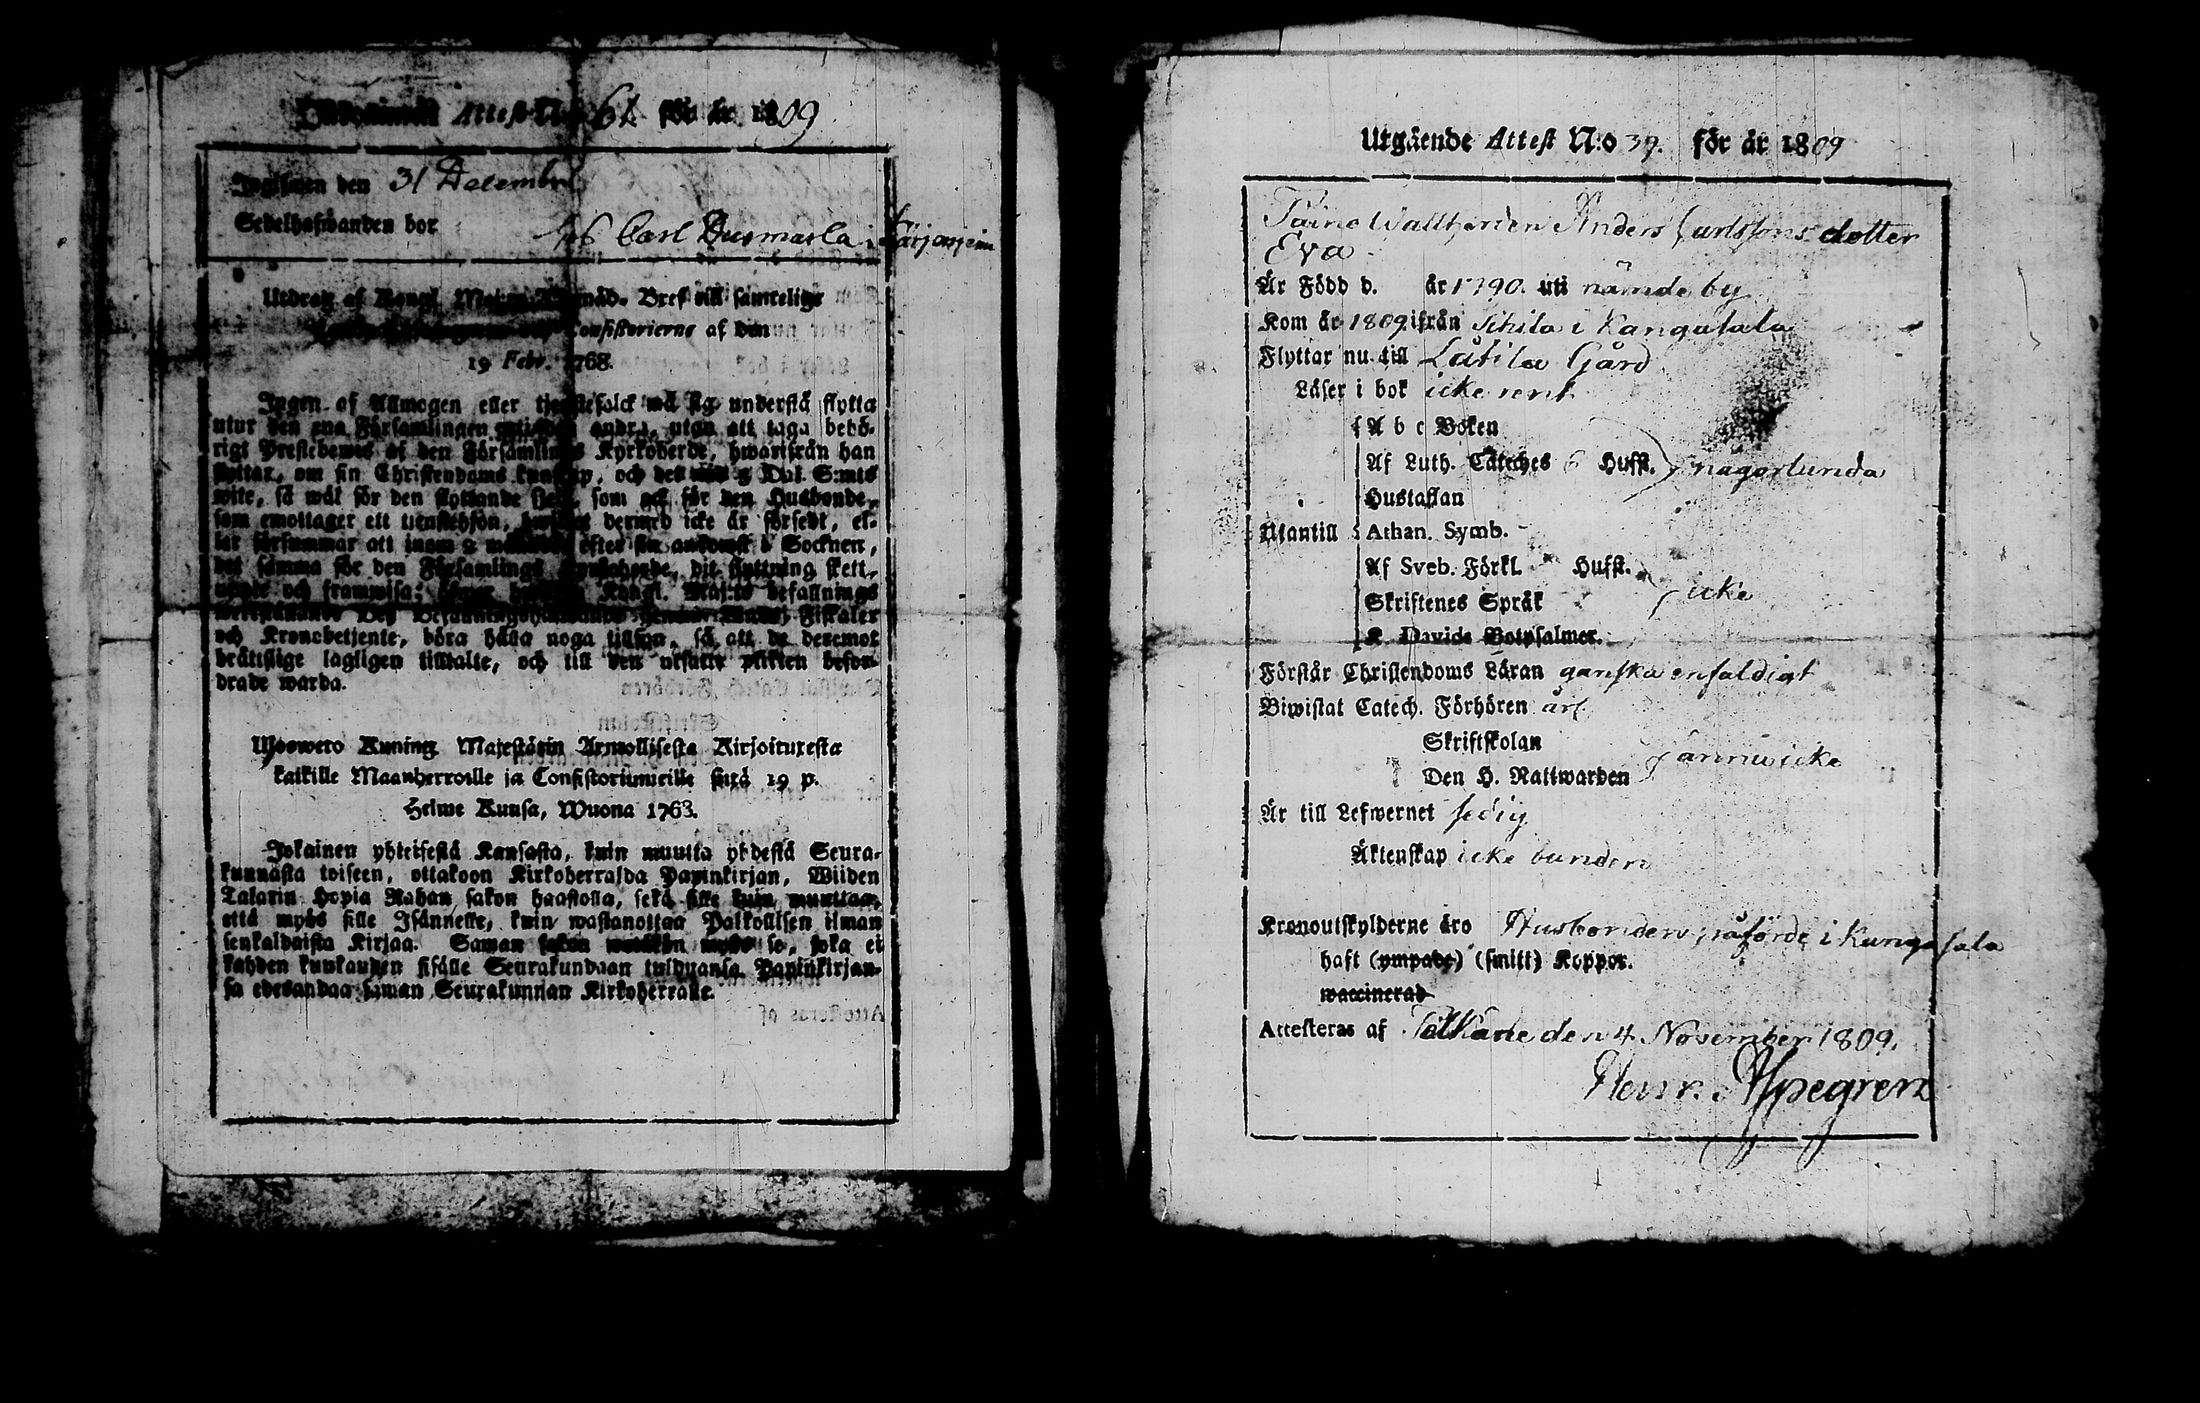 Attest N:o 61. för år 1809
Ingifwen den 31 Decembr
Sedelhafwanden bor hos Carl Dusmarla i
Utdrag af Kongl. Maj:ts Nåd. Bref till samtelige
Consistorierne af den
19 Febr. 1768.
Ingen af Allmogen eller tjenstefolck må sig understå flytta
utur den ena Församlingen uti den andra, utan att taga behö-
rigt Prestebewis af den Församlings Kyrkoherde, hwarifrån han
flyttar, om sin Christendoms kunskap, och det wid 5 Dal. S:mts
wite, så wäl för den flyttande sielf, som ock för den Husbonde,
som emottager ett tienstehjon, hwilket dermed icke är försedt, el-
ler försummar att inom 2 månader efter sin ankomst i Socknen,
det samma för den Församlings Kyrkoherde, dit flyttning skett,
uppte och framwisa; Kongl. Maj:ts befallnings
Fiskaler
och Kronobetjente, böra hålla noga tillsyn, så att de deremot
bråttslige lagligen tilltalte, och till den utsatte plikten befor-
drade warda.
Ulosweto Kuning. Majestätin Armollisesta Kirjoituxesta
kaikille Maanherroille ja Consistoriumeille sinä 19 p.
Helme Kuusa, Wuona 1763.
Jokainen yhteisestä Kansasta, kuin muutta yhdestä Seura-
kunnasta toiseen, ottakoon Kirkoherralda Papinkirjan, Wiiden
Talarin Hopia Rahan sakon haastolla, sekä sille kuin muuttaa,
että myös sille Isännelle, kuin wastanottaa Palkollisen ilman
senkaldaista Kirjaa. Saman sakon wetäkön myös se, joka ei
kahden kuukauden sisälle Seurakundaan tulduansa Papinkirjan-
sa edesandaa saman Seurakunnan Kirkoherralle.
Utgående Attest N:o 39. för år 1809
Anders Carlssons dotter
Eva
Är Född d. år 1790. uti nämde by
Kom år 1809 ifrån Tihila i Kangasala
Flyttar nu till Låtila Gård
Läser i bok icke rent
A b c Boken
Af Luth. Cateches 6 Hufst. någorlunda
Hustaflan
Utantill Athan. Symb.
Af Sveb. Förkl. Hufst.
Skriftenes Språk icke
K. Davids Botpsalmer.
Förstår Christendoms Läran ganska enfaldigt
Biwistat Catech. Förhören årl
Skriftskolan
Den H. Nattwarden ännu icke
Är till Lefwernet sedig
Äktenskap icke bunden
Kronoutskylderne äro Husbonden påförde i Kangasala
haft (ympade) (smitt) Koppor.
waccinerad
Attesteras af Pälkäne den 4 November 1809.
Henr. Aspegren